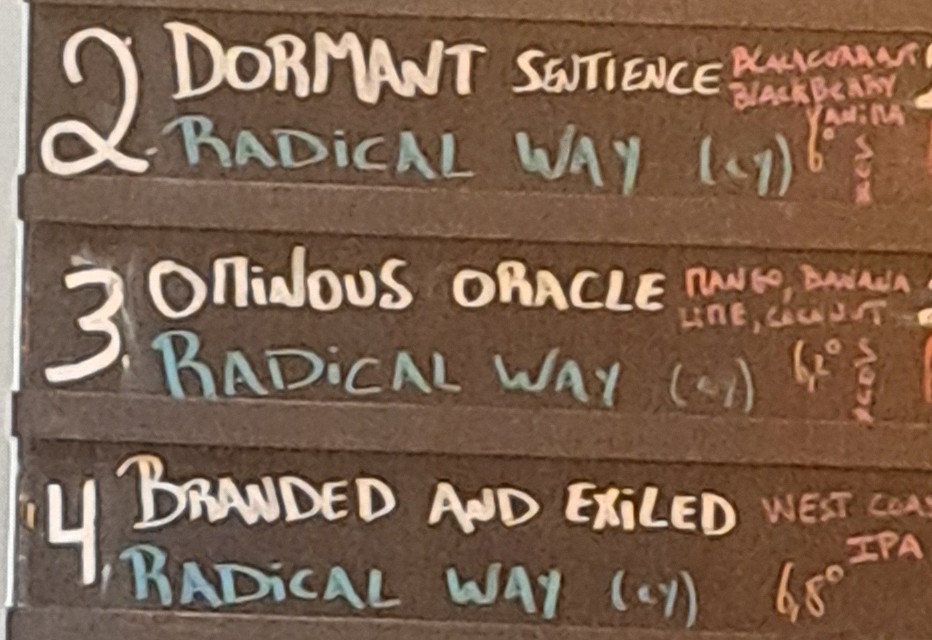 2 DORMANT SENTIENCE BLACKCURRANT
BLACKBERRY
VANILLA
RADICAL WAY (cy) 6° SOUR
3. OMINOUS ORACLE MANGO, BANANA
LIME, COCONUT
RADICAL WAY (cy) 6,2° SOUR
4. BRANDED AND EXILED WEST COAS
IPA
RADICAL WAY (cy) 6,8°